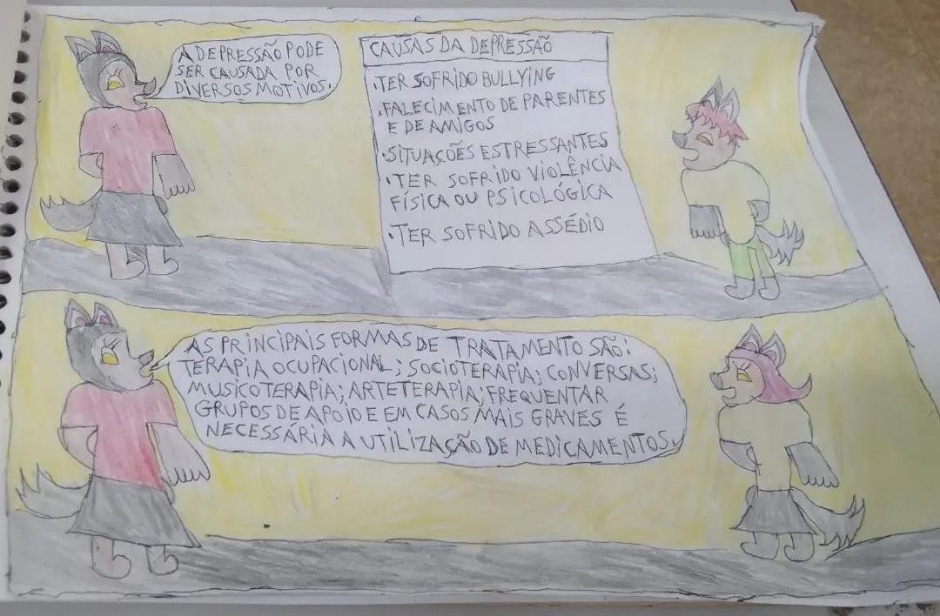 A DEPRESSÃO PODE
SER CAUSADA POR
DIVERSOS MOTIVOS.
CAUSAS DA DEPRESSÃO
• TER SOFRIDO BULLYING
• FALECIMENTO DE PARENTES
E DE AMIGOS
• SITUAÇÕES ESTRESSANTES
• TER SOFRIDO VIOLÊNCIA
FÍSICA OU PSICOLÓGICA
• TER SOFRIDO ASSÉDIO
AS PRINCIPAIS FORMAS DE TRATAMENTO SÃO:
TERAPIA OCUPACIONAL; SOCIOTERAPIA; CONVERSAS;
MUSICOTERAPIA; ARTETERAPIA; FREQUENTAR
GRUPOS DE APOIO E EM CASOS MAIS GRAVES É
NECESSÁRIA A UTILIZAÇÃO DE MEDICAMENTOS.